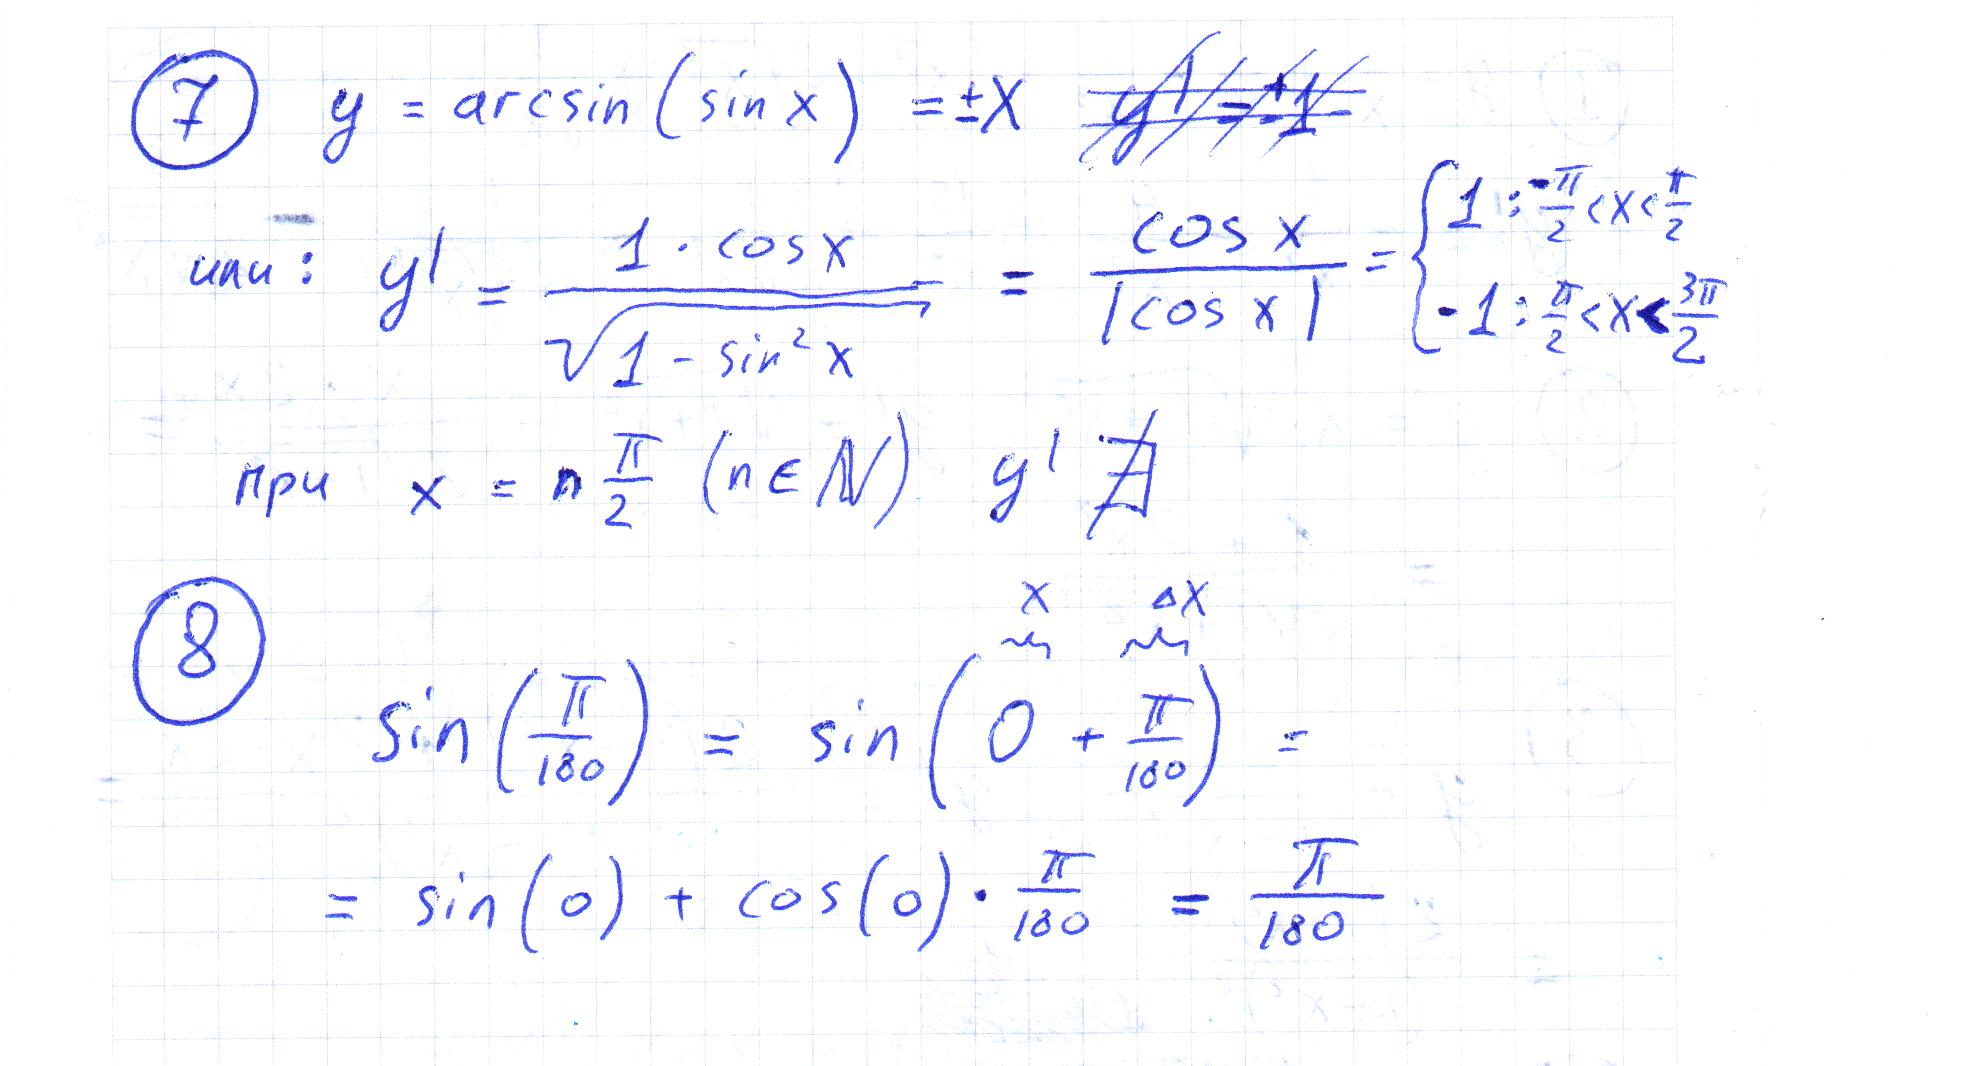 7 y = arcsin(sin x) = ±x y' = ±1
или: y' = (1 · cos x)/√(1 - sin² x) = cos x/|cos x| = { 1 : -π/2 < x < π/2
-1 : π/2 < x < 3π/2
при x = n π/2 (n ∈ ℕ) y' ∄
8
x Δx
sin(π/180) = sin(0 + π/180) =
= sin(0) + cos(0) · π/180 = π/180